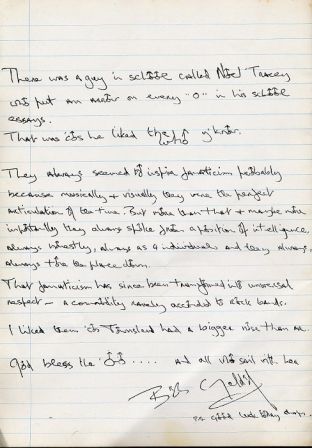 There was a guy in school called Noel Tracey
who put an arrow on every "O" in his school
essays.
That was 'cos he liked the who y'know.
They always seemed to inspire fanaticism probably
because musically + visually they were the perfect
articulation of the time. But more than that + maybe more
importantly they always spoke from a position of intelligence,
always honestly, always as individuals and they always,
always tore the place down.
That fanaticism has since been transformed into universal
respect – a commodity rarely accorded to rock bands.
I liked them 'cos Townshend had a bigger nose than me.
God bless the 'OO .... And all who sail with her
Bob Geldof
P.S. Good luck